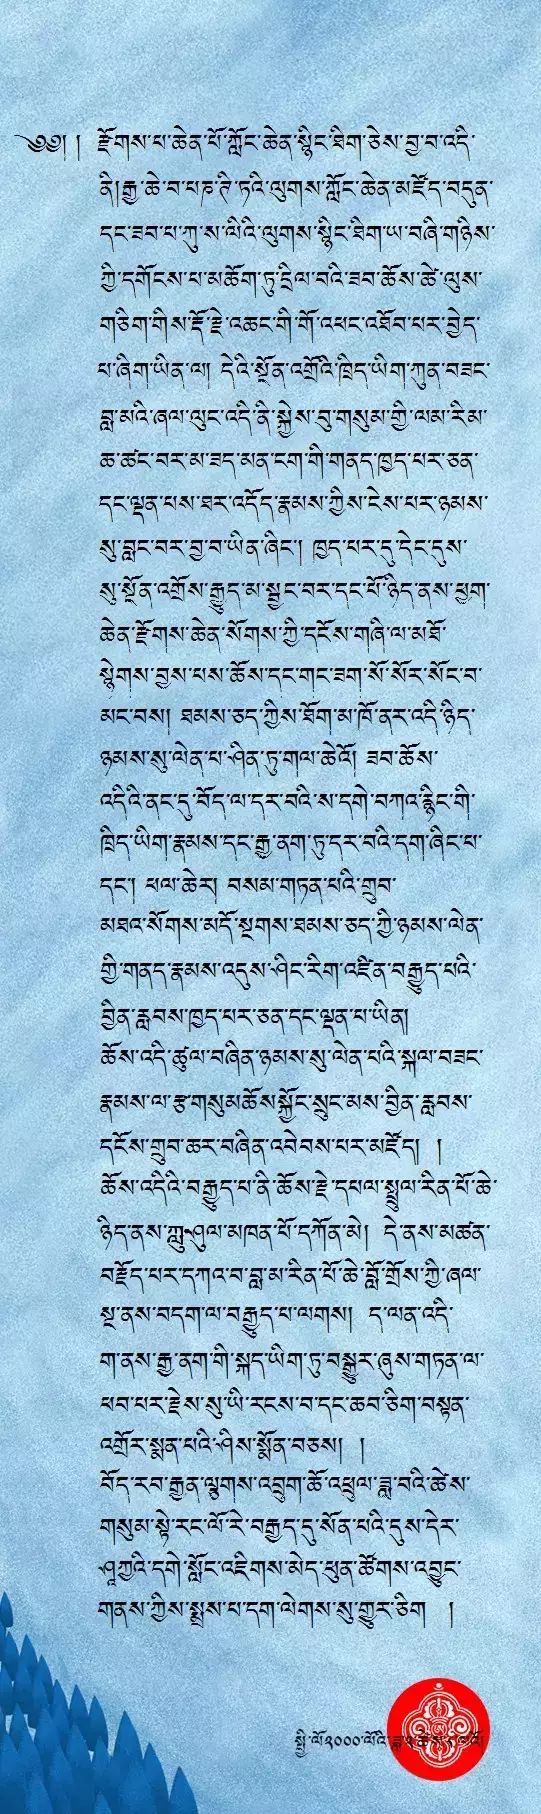 ༄༅། ། རྫོགས་པ་ཆེན་པོ་ཀློང་ཆེན་སྙིང་ཐིག་ཅེས་བྱ་བ་འདི་
ནི།རྒྱ་ཆེ་བ་པཎ་ཊི་ཏའི་ལུགས་ཀློང་ཆེན་མཛོད་བདུན་
དང་ཟབ་པ་ཀུ་ས་ལིའི་ལུགས་སྙིང་ཐིག་ཡ་བཞི་གཉིས་
ཀྱི་དགོངས་པ་མཆོག་ཏུ་དྲིལ་བའི་ཟབ་ཆོས་ཚེ་ལུས་
གཅིག་གིས་རྡོ་རྗེ་འཆང་གི་གོ་འཕང་འཐོབ་པར་བྱེད་
པ་ཞིག་ཡིན་ལ། དེའི་སྔོན་འགྲོའི་ཁྲིད་ཡིག་ཀུན་བཟང་
བླ་མའི་ཞལ་ལུང་འདི་ནི་སྐྱེས་བུ་གསུམ་གྱི་ལམ་རིམ་
ཆ་ཚང་བར་མ་ཟད་མན་ངག་གི་གནད་ཁྱད་པར་ཅན་
དང་ལྡན་པས་ཐར་འདོད་རྣམས་ཀྱིས་ངེས་པར་ཉམས་
སུ་བླང་བར་བྱ་བ་ཡིན་ཞིང་། ཁྱད་པར་དུ་དེང་དུས་
སུ་སྔོན་འགྲོས་རྒྱུད་མ་སྦྱང་བར་དང་པོ་ཉིད་ནས་ཕྱག་
ཆེན་རྫོགས་ཆེན་སོགས་ཀྱི་དངོས་གཞི་ལ་མཐོ་
སྙེགས་བྱས་པས་ཆོས་དང་གང་ཟག་སོ་སོར་སོང་བ་
མང་བས། ཐམས་ཅད་ཀྱིས་ཐོག་མ་ཁོ་ནར་འདི་ཉིད་
ཉམས་སུ་ལེན་པ་ཤིན་ཏུ་གལ་ཆེའོ། ཟབ་ཆོས་
འདིའི་ནང་དུ་བོད་ལ་དར་བའི་ས་དགེ་བཀའ་རྙིང་གི་
ཁྲིད་ཡིག་རྣམས་དང་རྒྱ་ནག་ཏུ་དར་བའི་དག་ཞིང་པ་
དང་། ཕལ་ཆེར། བསམ་གཏན་པའི་གྲུབ་
མཐའ་སོགས་མདོ་སྔགས་ཐམས་ཅད་ཀྱི་ཉམས་ལེན་
གྱི་གནད་རྣམས་འདུས་ཤིང་རིག་འཛིན་བརྒྱུད་པའི་
བྱིན་རླབས་ཁྱད་པར་ཅན་དང་ལྡན་པ་ཡིན།
ཆོས་འདི་ཚུལ་བཞིན་ཉམས་སུ་ལེན་པའི་སྐལ་བཟང་
རྣམས་ལ་རྩ་གསུམཆོསསྐྱོང་སྲུང་མས་བྱིན་རླབས་
དངོས་གྲུབ་ཆར་བཞིན་འབེབས་པར་མཛོད། །
ཆོས་འདིའི་བརྒྱུད་པ་ནི་ཆོས་རྗེ་དཔལ་སྤྲུལ་རིན་པོ་ཆེ་
ཉིད་ནས་ཀླུ་ཤུལ་མཁན་པོ་དཀོན་མེ། དེ་ནས་མཚན་
བརྗོད་པར་དཀའ་བ་བླ་མ་རིན་པོ་ཆེ་བློ་གྲོས་ཀྱི་ཞལ་
སྔ་ནས་བདག་ལ་བརྒྱུད་པ་ལགས། ད་ལན་འདི་
གནས་རྒྱ་ནག་གི་སྐད་ཡིག་ཏུ་བསྒྱུར་ཞུས་གཏན་ལ་
ཕབ་པར་རྗེས་སུ་ཡི་རངས་བ་དང་ཆབ་ཅིག་བསྟན་
འགྲོར་སྨན་པའི་ཤིས་སྨོན་བཅས། །
བོད་རབ་རྒྱན་ལྕགས་འབྲུག་ཆོ་འཕྲུལ་ཟླ་བའི་ཚེས་
གསུམ་སྟེ་རང་ལོ་རེ་བརྒྱད་དུ་སོན་པའི་དུས་དེར་
ཤཱཀྱའི་དགེ་སློང་འཇིགས་མེད་ཕུན་ཚོགས་འབྱུང་
གནས་ཀྱིས་སྨྲས་པ་དག་ལེགས་སུ་གྱུར་ཅིག །
སྤྱི་ལོ༢༠༠༠་ལོའི་ཟླ